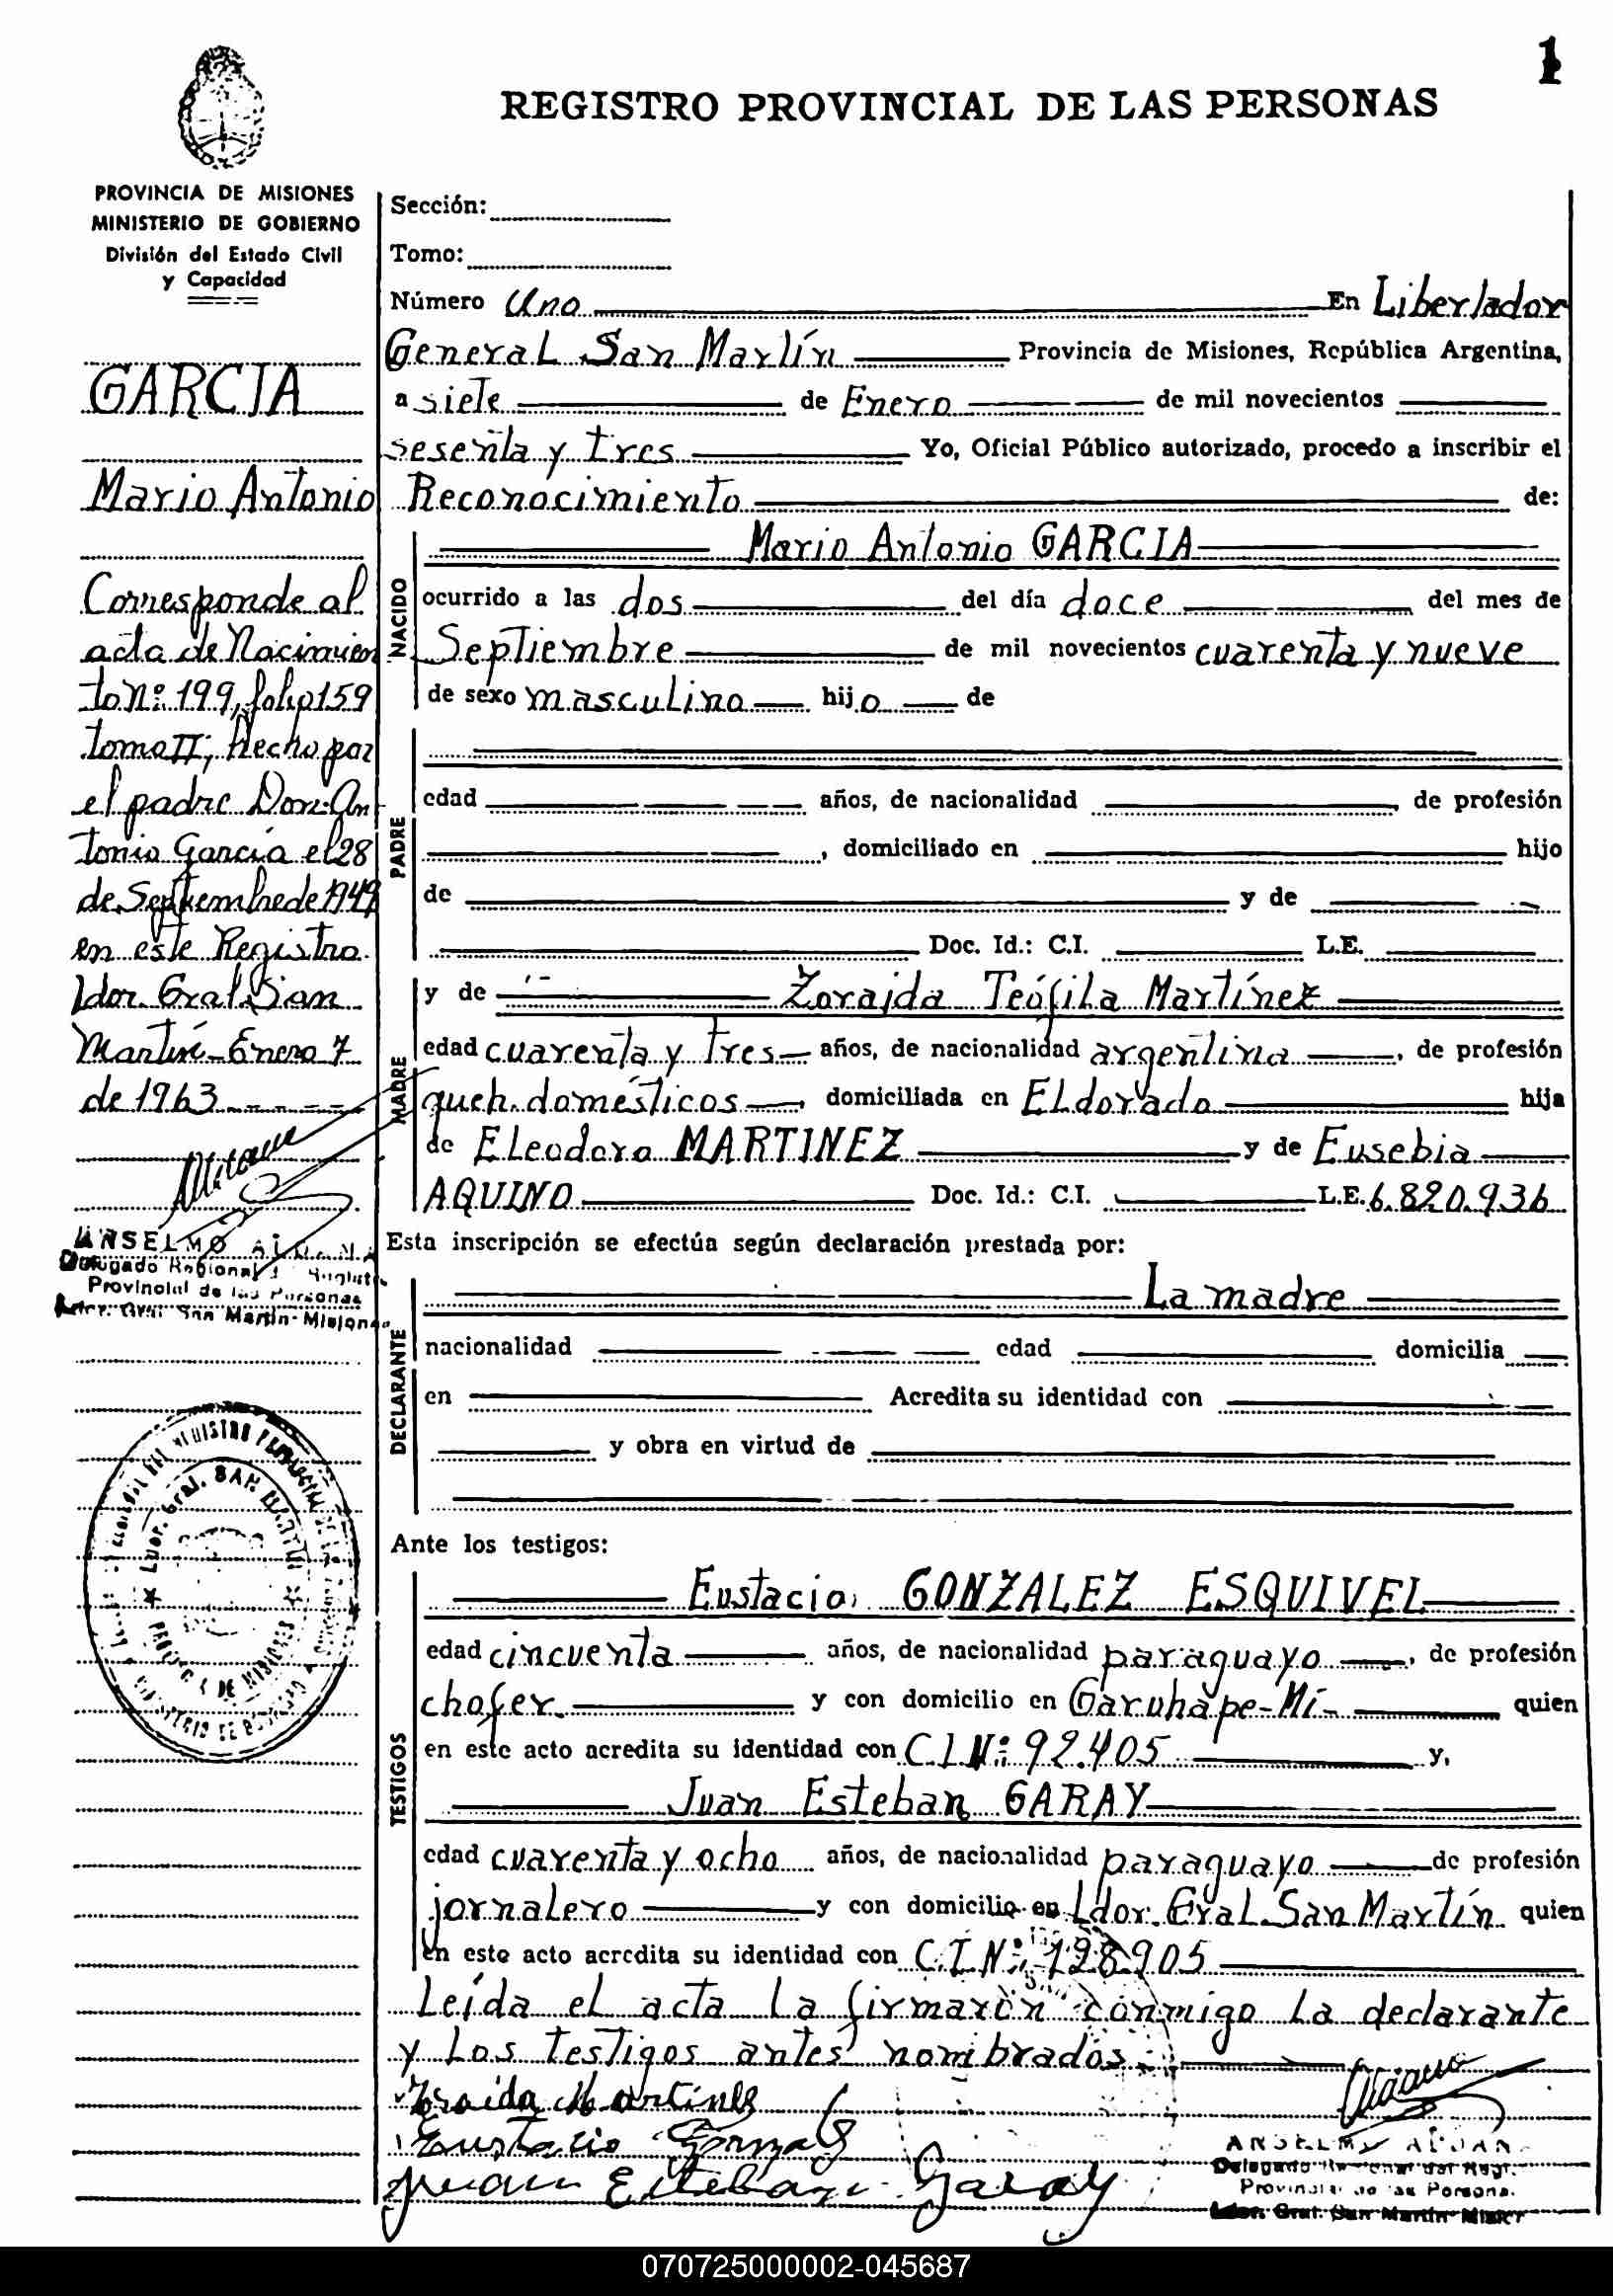 1
REGISTRO PROVINCIAL DE LAS PERSONAS
PROVINCIA DE MISIONES
MINISTERIO DE GOBIERNO
División del Estado Civil
y Capacidad
GARCIA
Mario Antonio
Corresponde al
acta de Nacimien
to Nº 199, folio 159
tomo II; Hecho por
el padre Don: An
tonio Garcia el 28
de Septiembre de 1949
en este Registro
Ldor. Gral San
Martín - Enero 7
de 1963
ANSELMO
Delegado Regional
Provincial de las Personas
Ldor. Gral San Martin - Misiones
Ldor. Gral. SAN MARTIN
PROVINCIA DE MISIONES
Sección:
Tomo:
Número Uno En Libertador
General San Martín Provincia de Misiones, República Argentina,
a siete de Enero de mil novecientos
sesenta y tres Yo, Oficial Público autorizado, procedo a inscribir el
Reconocimiento de:
NACIDO
Mario Antonio GARCIA
ocurrido a las dos del día doce del mes de
Septiembre de mil novecientos cuarenta y nueve
de sexo masculino hijo de
PADRE
edad años, de nacionalidad de profesión
, domiciliado en hijo
de y de
Doc. Id.: C.I. L.E.
MADRE
y de Zoraida Teófila Martínez
edad cuarenta y tres años, de nacionalidad argentina, de profesión
queh. domésticos, domiciliada en Eldorado hija
de Eleodoro MARTINEZ y de Eusebia
AQUINO Doc. Id.: C.I. L.E. 6.820.936
Esta inscripción se efectúa según declaración prestada por:
DECLARANTE
La madre
nacionalidad edad domicilia
en Acredita su identidad con
y obra en virtud de
Ante los testigos:
TESTIGOS
Eustacio GONZALEZ ESQUIVEL
edad cincuenta años, de nacionalidad paraguayo, de profesión
chofer. y con domicilio en Garuhape-Mí- quien
en este acto acredita su identidad con C.I Nº: 92.405 y,
Juan Esteban GARAY
edad cuarenta y ocho años, de nacionalidad paraguayo de profesión
jornalero y con domicilio en Ldor. Gral San Martín quien
en este acto acredita su identidad con C.I Nº: 128.905
Leída el acta la firmaron conmigo la declarante
y los testigos antes nombrados.
Zoraida Martines
Eustacio Gonzalez
Juan Esteban Garay
ANSELMO
Delegado Regional del Regi.
Provincial de las Persona.
Ldor. Gral. San Martin
070725000002-045687